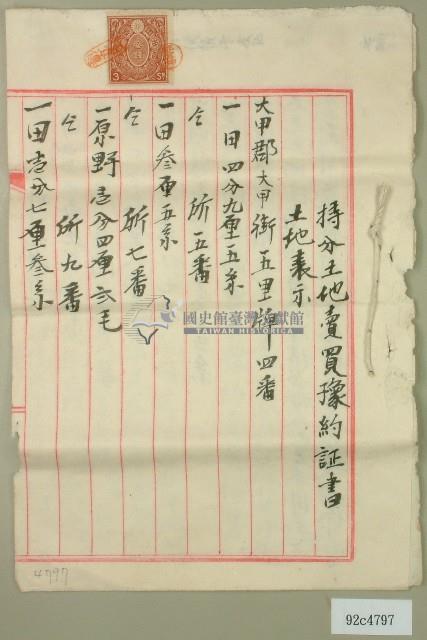 持分土地賣買豫約証書
土地表示
大甲郡大甲街五里牌四番
一田四分九厘五系
仝 所五番
一田叁厘五系
仝 所七番
一原野壱分四厘弍毛
仝 所九番
一田壱分七厘叁系
3 Sn
國史館臺灣文獻館
TAIWAN HISTORICA
4797
92c4797